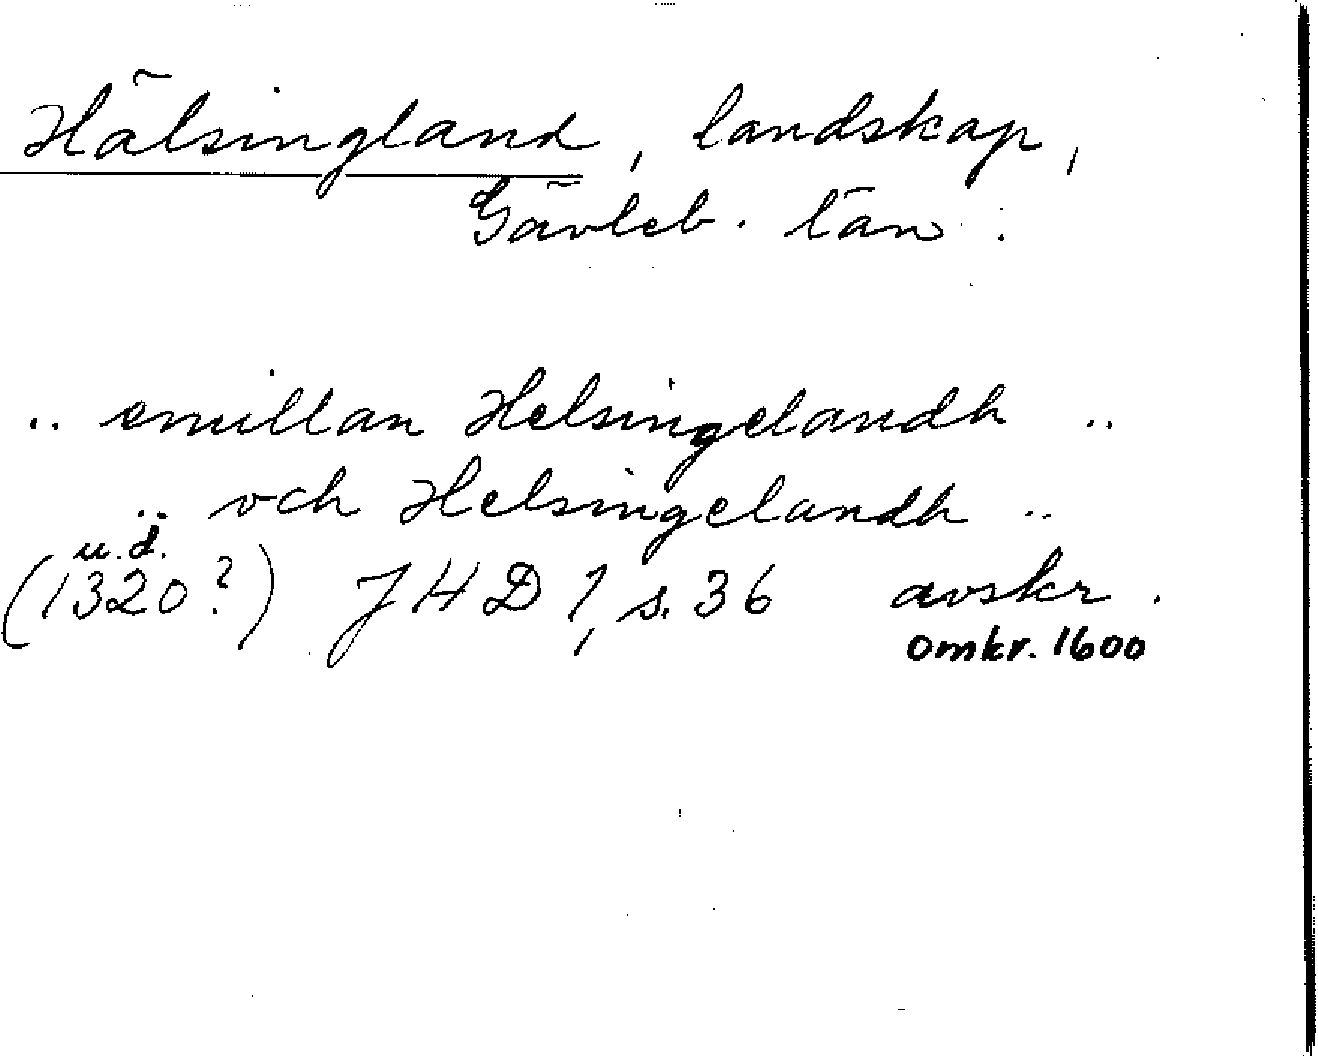 Hälsingland, landskap,
Gävleb. län.
.. emillan Helsingelandh ..
.. och Helsingelandh ..
u.d.
(1320?) JHD 1, s. 36 avskr.
omkr. 1600